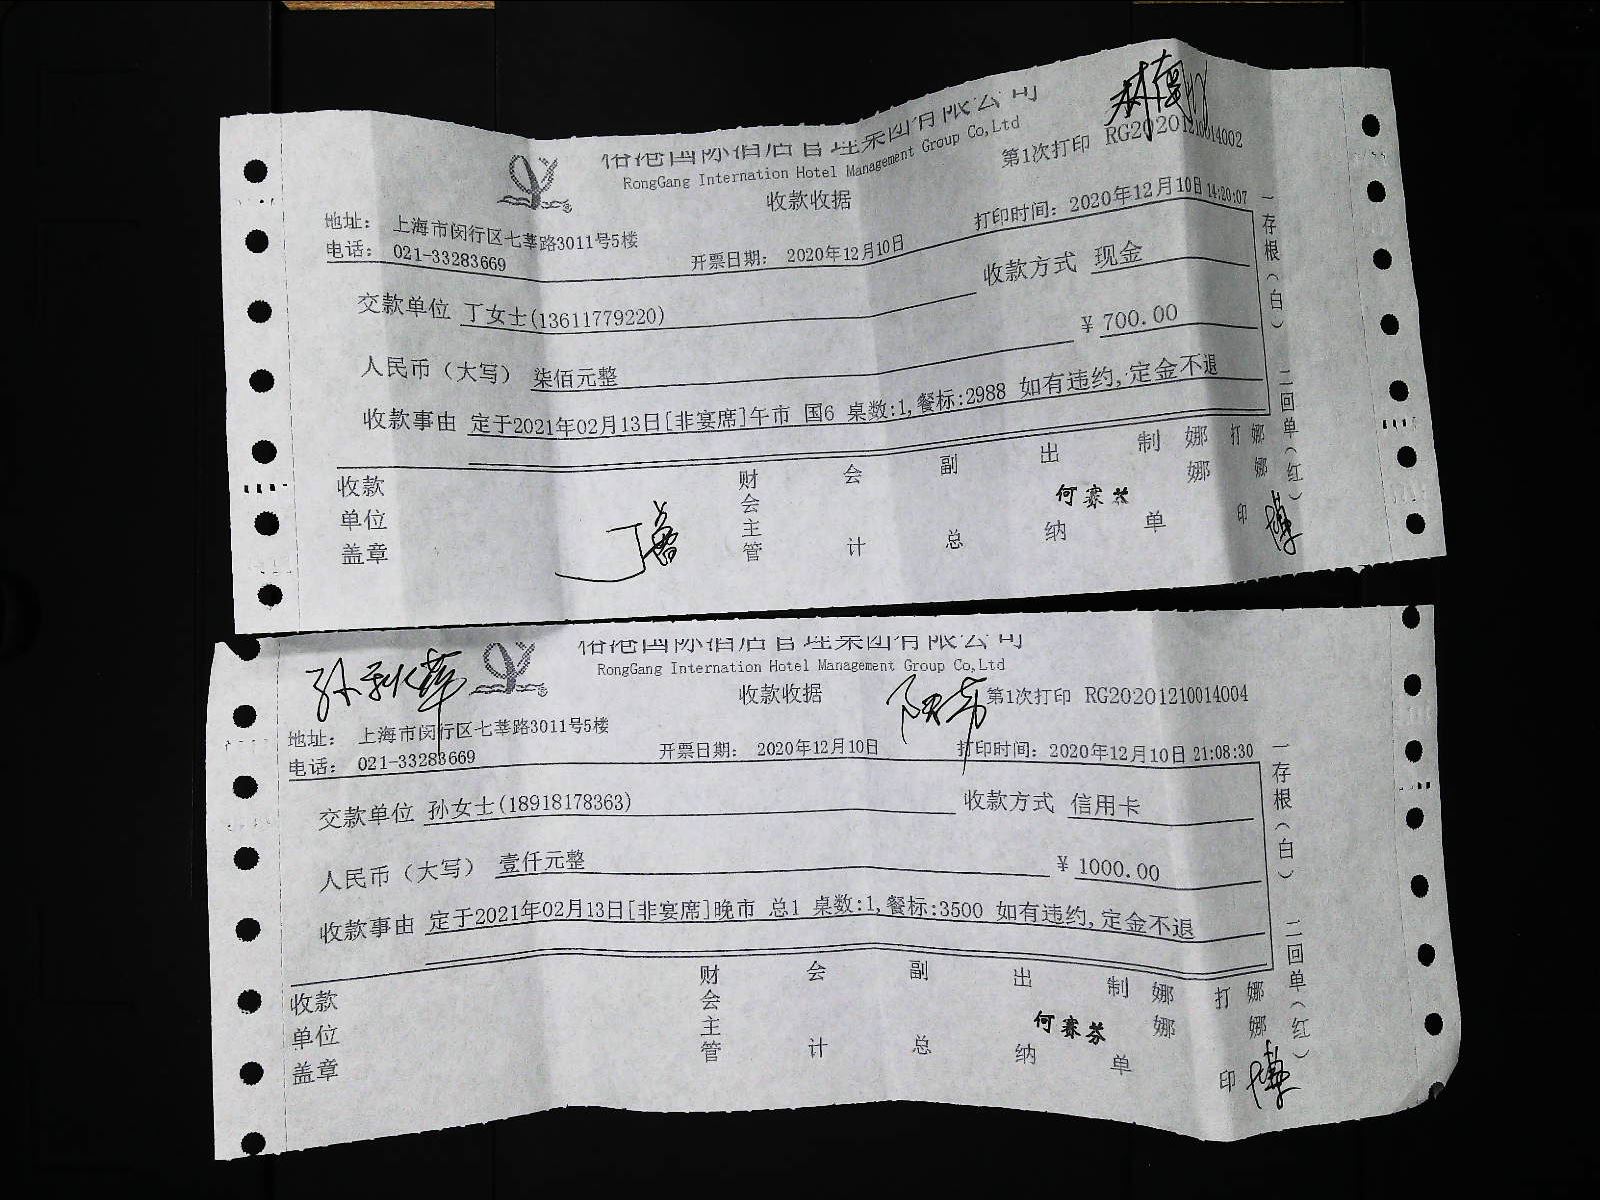 榕港国际酒店管理集团有限公司
RongGang Internation Hotel Management Group Co,Ltd
收款收据
第1次打印 RG20201210014002
地址： 上海市闵行区七莘路3011号5楼
电话： 021-33283669
开票日期： 2020年12月10日
打印时间：2020年12月10日 14:20:07
交款单位 丁女士(13611779220)
收款方式 现金
人民币（大写） 柒佰元整
¥ 700.00
收款事由 定于2021年02月13日[非宴席]午市 国6 桌数:1,餐标:2988 如有违约,定金不退
收款单位盖章
财会主管
会计
副总
出纳 何赛芬
制单 娜娜
打印 娜娜
一存根（白） 二回单（红）
榕港国际酒店管理集团有限公司
RongGang Internation Hotel Management Group Co,Ltd
孙秋萍
收款收据
第1次打印 RG20201210014004
地址： 上海市闵行区七莘路3011号5楼
电话： 021-33283669
开票日期： 2020年12月10日
打印时间：2020年12月10日 21:08:30
交款单位 孙女士(18918178363)
收款方式 信用卡
人民币（大写） 壹仟元整
¥ 1000.00
收款事由 定于2021年02月13日[非宴席]晚市 总1 桌数:1,餐标:3500 如有违约,定金不退
收款单位盖章
财会主管
会计
副总
出纳 何赛芬
制单 娜娜
打印 娜娜
一存根（白） 二回单（红）